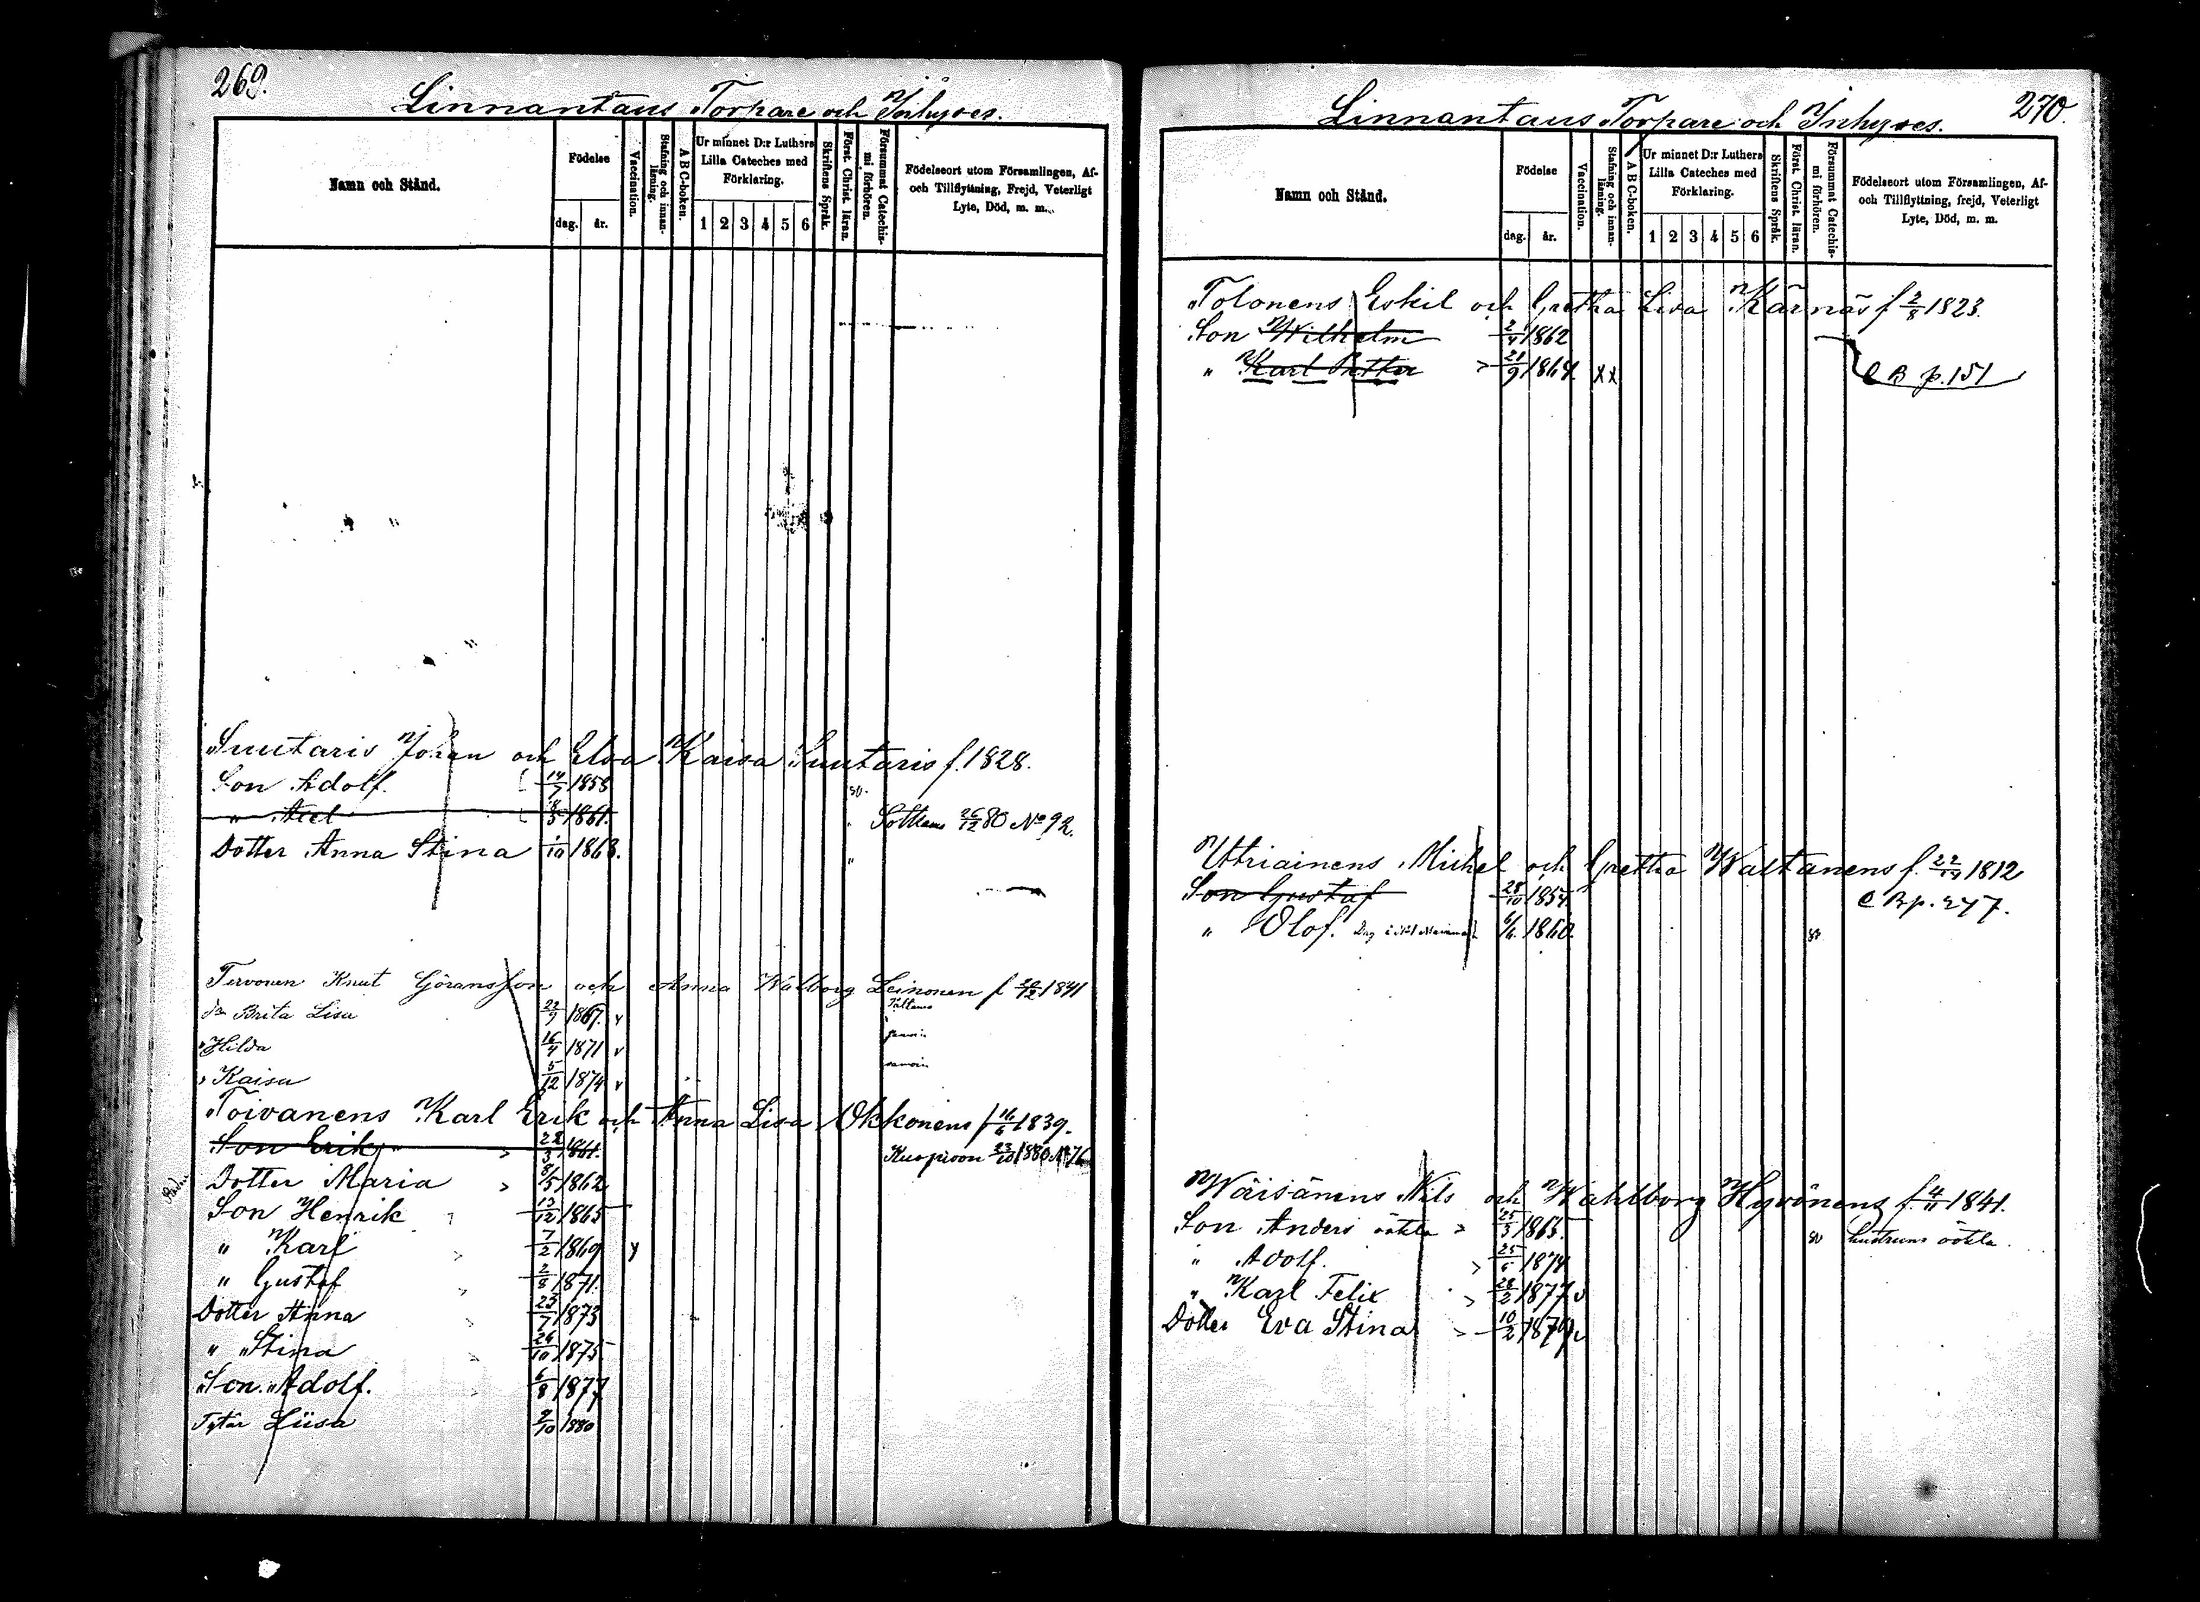 269.
Linnantaus Torpare och Inhyses.
Namn och Stånd.
Födelse
dag. år.
Vaccination.
Stafning och innan-läsning.
A B C-boken.
Ur minnet D:r Luthers Lilla Cateches med Förklaring.
1 2 3 4 5 6
Skriftens Språk.
Först. Christ. läran.
Försummat Catechis-mi förhören.
Födelseort utom Församlingen, Af- och Tillflyttning, Frejd, Veterligt Lyte, Död, m. m.
Suutaris Johan och Elsa Kaisa Suutaris f. 1828.
Son Adolf. 14/7 1858 sv.
" Axel 8/3 1861. Sotkamo 26/12 80 No 92.
Dotter Anna Stina 1/10 1863. "
Tervonen Knut Göransson och Anna Walborg Leinonen f 20/12 1841
dr Brita Lisa 22/9 1867. v
" Hilda 16/4 1871 v
" Kaisa 5/12 1874 v
Toivanens Karl Erik och Anna Lisa Okkonens f 16/6 1839.
Son Erik 22/3 1861. Kuopioon 23/10 1880 No 76
Dotter Maria 8/5 1862
Son Henrik 13/12 1865
" Karl 7/2 1869 v
" Gustaf 2/8 1871.
Dotter Anna 23/7 1873
" Stina 26/10 1875
Son Adolf. 6/8 1877
Tytär Liisa 9/10 1880
270.
Linnantaus Torpare och Inhyses.
Namn och Stånd.
Födelse
dag. år.
Vaccination.
Stafning och innan-läsning.
A B C-boken.
Ur minnet D:r Luthers Lilla Cateches med Förklaring.
1 2 3 4 5 6
Skriftens Språk.
Först. Christ. läran.
Försummat Catechis-mi förhören.
Födelseort utom Församlingen, Af- och Tillflyttning, frejd, Veterligt Lyte, Död, m. m.
Tolonens Eskil och Gretha Lisa Kärnäs f 2/8 1823.
Son Wilhelm 2/4 1862
" Karl Petter 21/9 1864 xx C B p. 151
Uttriainens Mickel och Gretha Wattanens f. 1812
Son Gustaf 28/10 1854 C B p. 277.
" Olof. 6/6 1860 sv
Wäisänens Nils och Wahlborg Hyvönens f. 4/11 1841.
Son Anders 25/3 1865. sv
" Adolf. 25/5 1874
" Karl Felix 28/2 1877 v
Dotter Eva Stina 10/2 1879 v